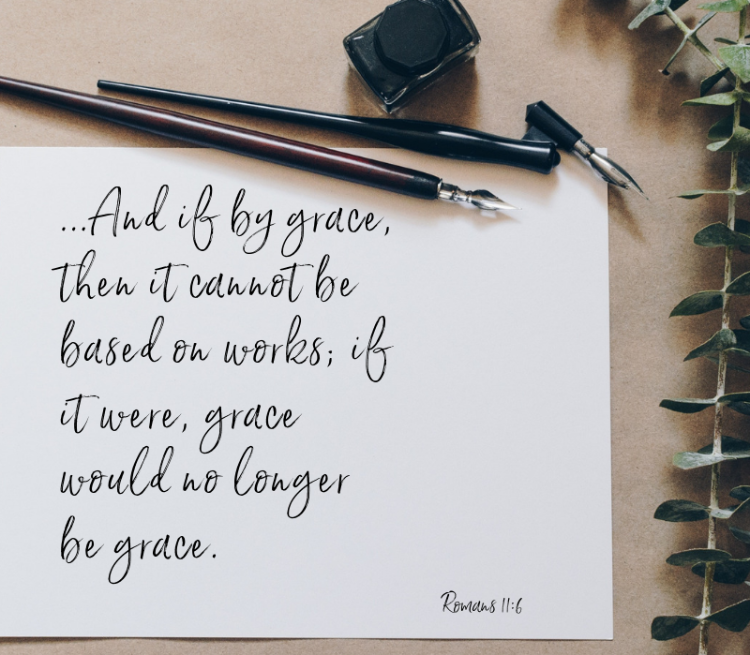 ...And if by grace,
then it cannot be
based on works; if
it were, grace
would no longer
be grace.
Romans 11:6